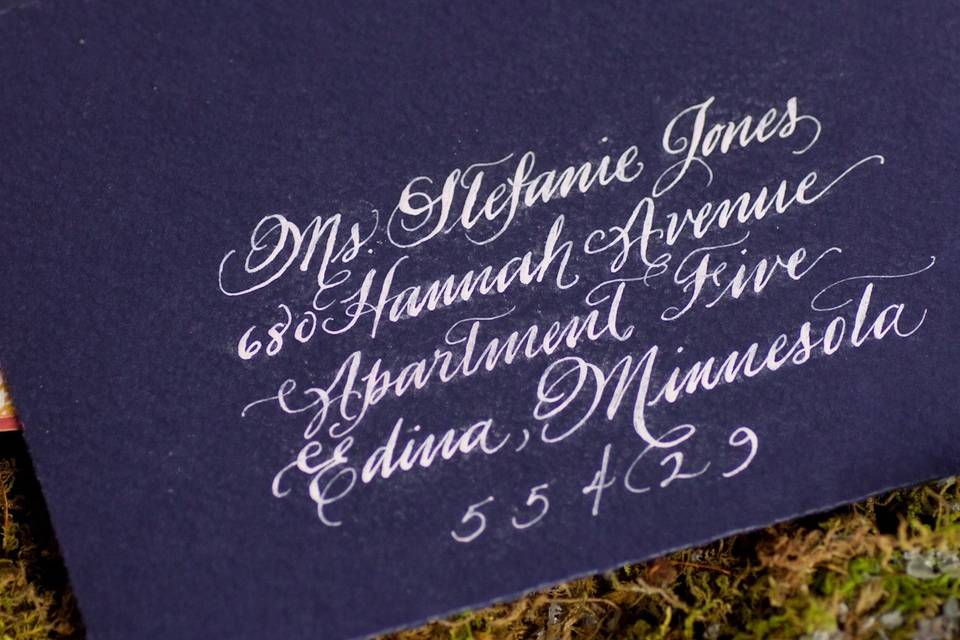 Ms. Stefanie Jones
680 Hannah Avenue
Apartment Five
Edina, Minnesota
55429